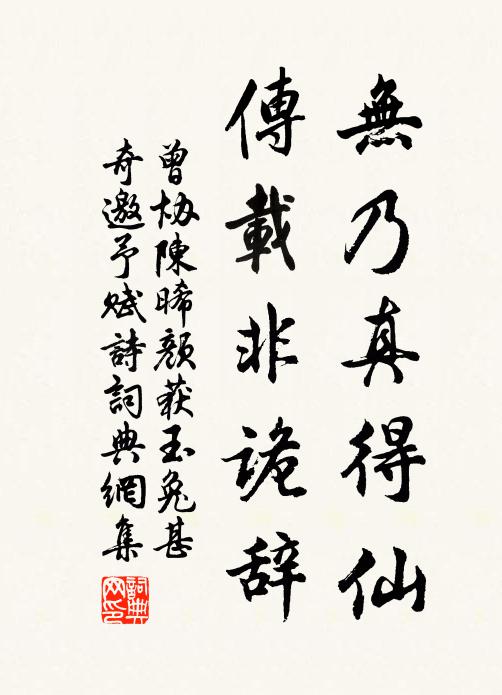 無乃真得仙
傳載非詭辞
曾協陳晞顏获玉兔甚
奇邀予賦詩詞典網集
詞典网印